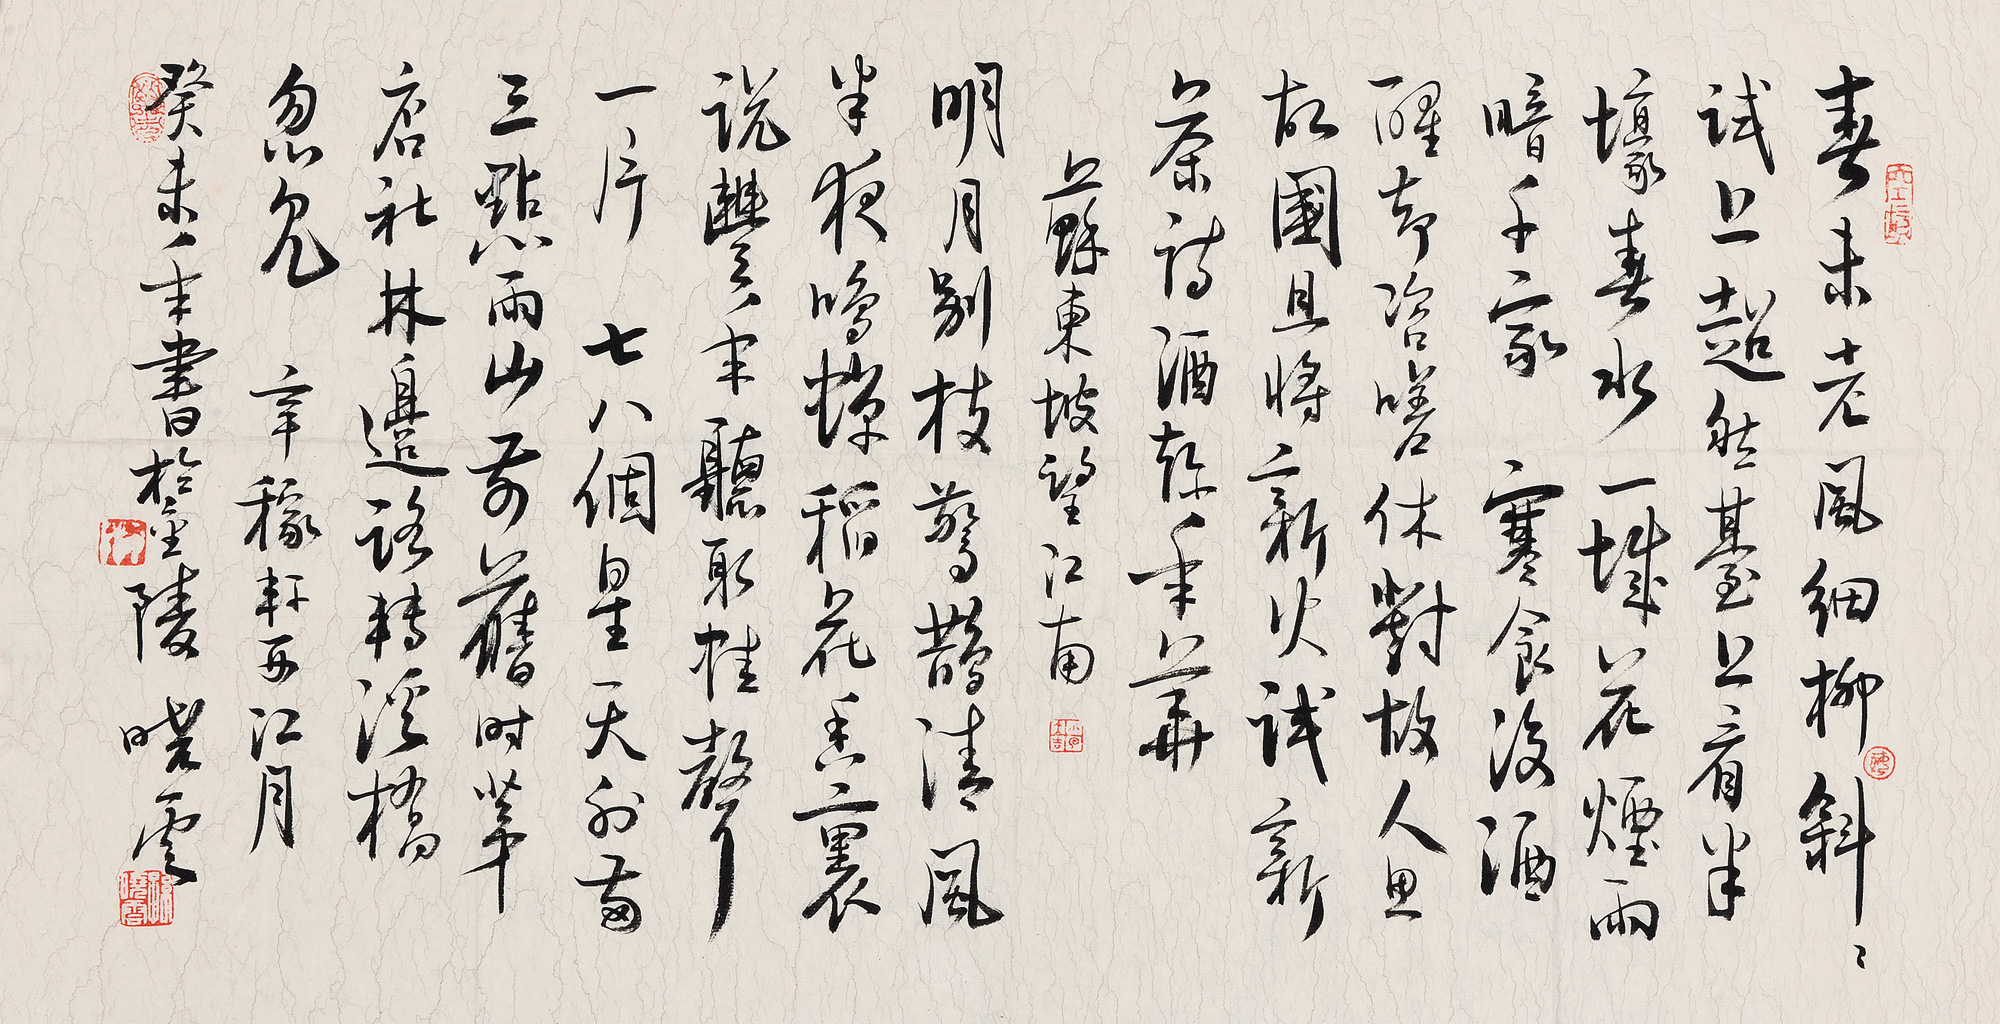 春未老風細柳斜〻
試上超然臺上看半
壕春水一城花煙雨
暗千家 寒食後酒
醒却咨嗟休對故人思
故國且將新火試新
茶詩酒趁年華
蘇東坡望江南
明月別枝驚鵲清風
半夜鳴蟬稻花香裏
説豐年聽取蛙聲
一片 七八個星天外兩
三點雨山前舊時茅
店社林邊路轉溪橋
忽見 辛稼軒西江月
癸未年書於金陵 曉雲